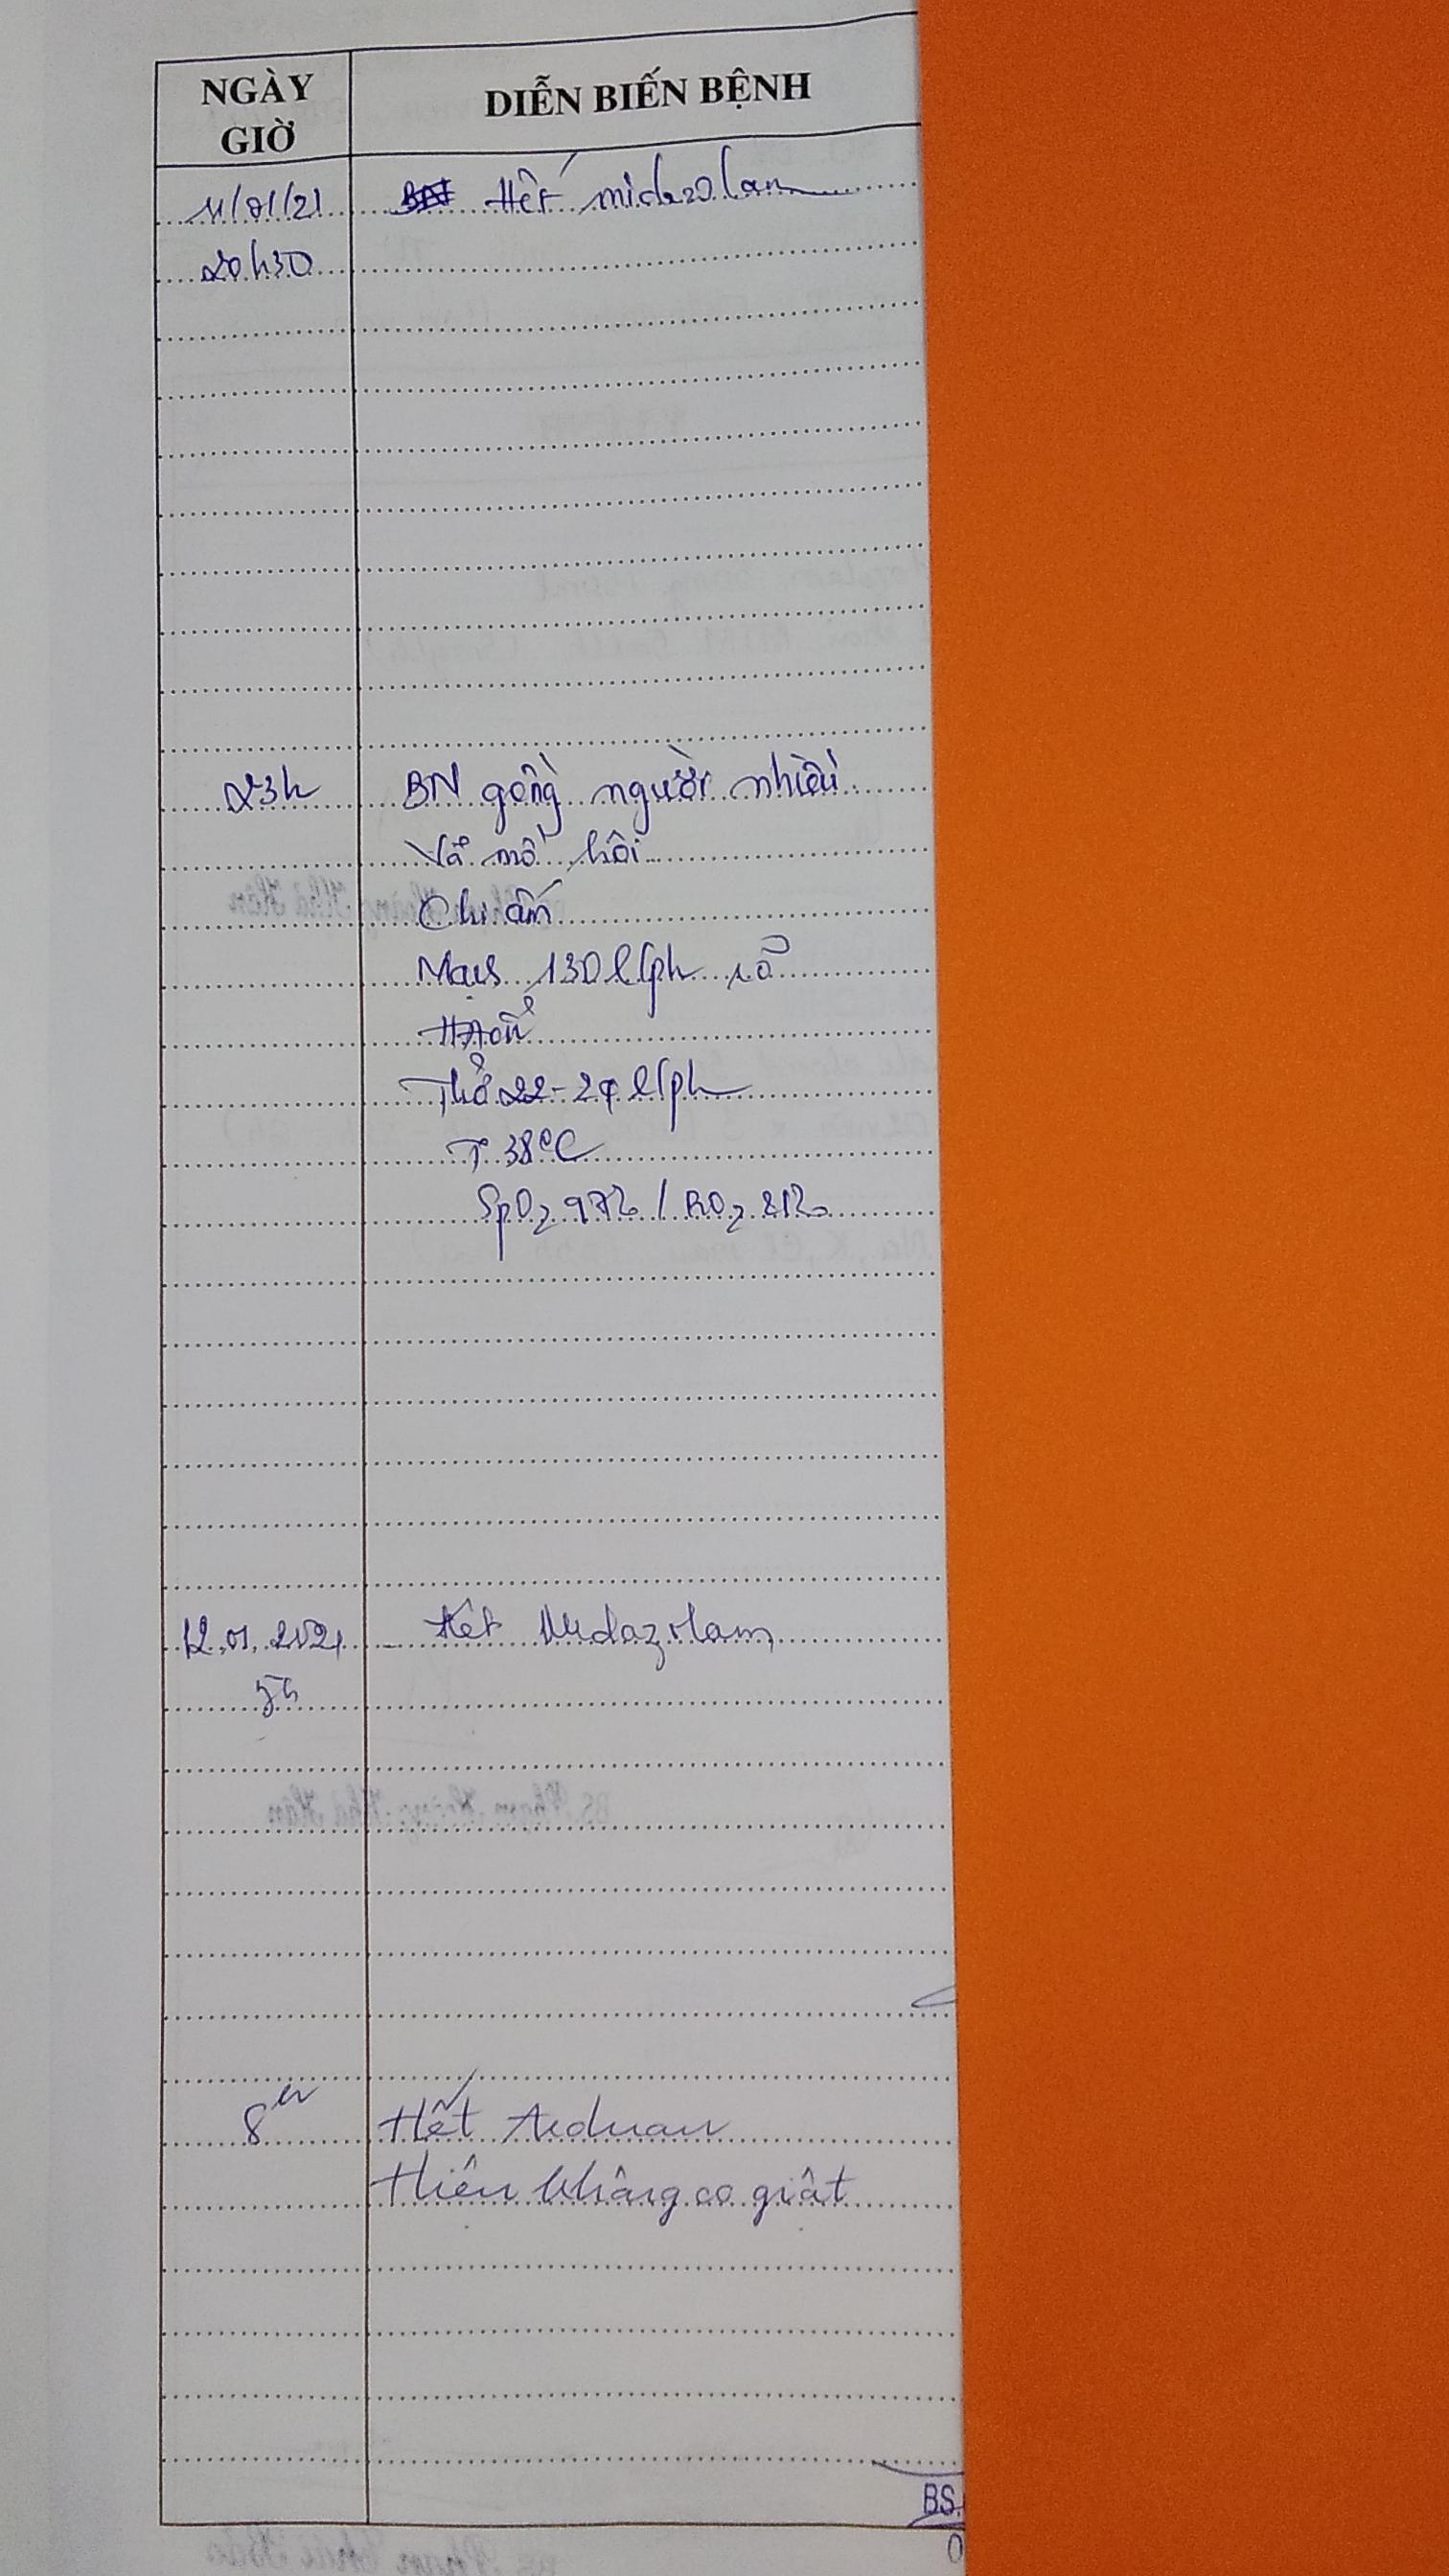 NGÀY GIỜ
DIỄN BIẾN BỆNH
11/01/21 Hết midazolam
20h30
23h BN gồng người nhiều
Vã mồ hôi
Chi ấm
Mạch 130 l/ph rõ
HA ổn
Thở 22-24 l/ph
T° 38°C
SpO2 97% / FiO2 21%
12.01.2021 - Hết Midazolam
5h
8h Hết Arduan
Hiện không co giật
BS.